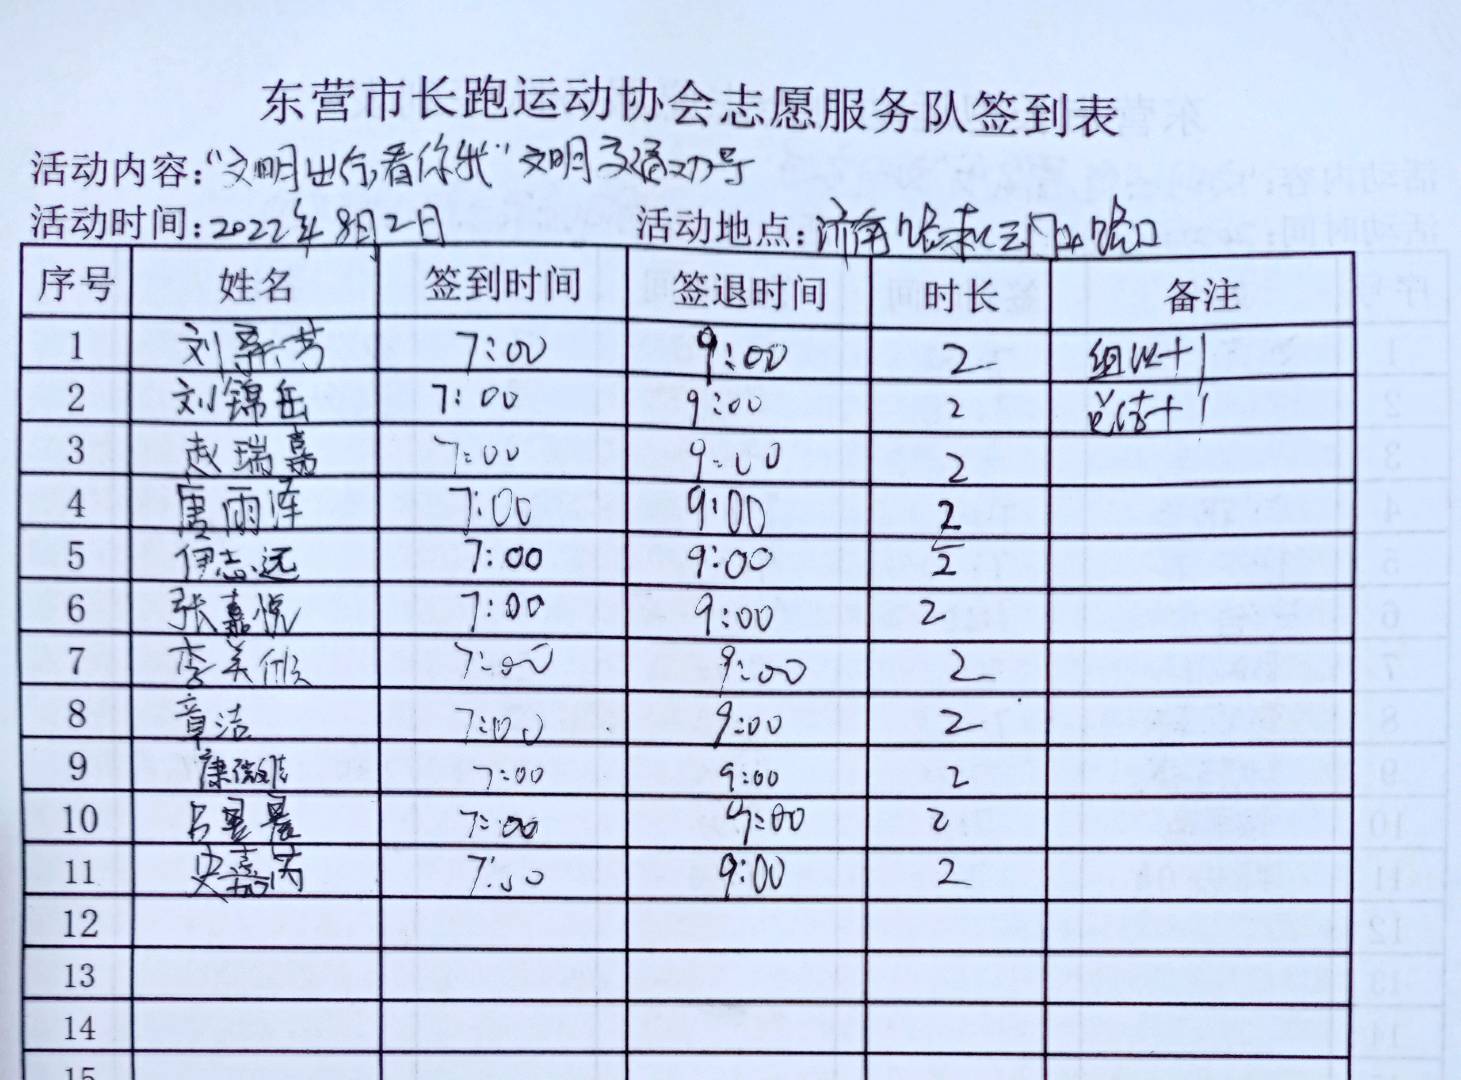 东营市长跑运动协会志愿服务队签到表
活动内容:“文明出行看你我”文明交通劝导
活动时间:2022年8月2日 活动地点:济南路
序号 姓名 签到时间 签退时间 时长 备注
1 刘 芳 7:00 9:00 2 组织+1
2 刘锦岳 7:00 9:00 2 总结+1
3 赵瑞嘉 7:00 9:00 2
4 唐雨泽 7:00 9:00 2
5 伊志远 7:00 9:00 2
6 张嘉悦 7:00 9:00 2
7 李美欣 7:00 9:00 2
8 章洁 7:00 9:00 2
9 康 7:00 9:00 2
10 吕星晨 7:00 9:00 2
11 史嘉 7:00 9:00 2
12
13
14
15